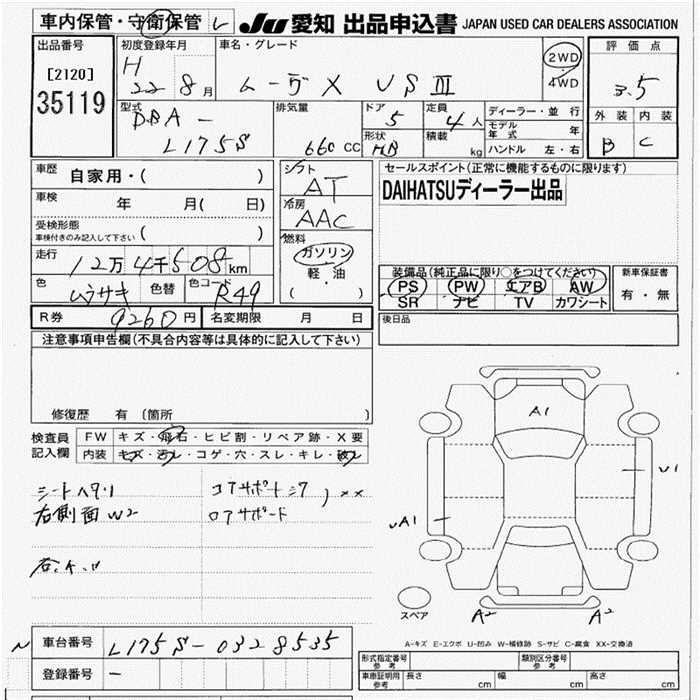 車内保管・守衛保管 レ
JU 愛知 出品申込書 JAPAN USED CAR DEALERS ASSOCIATION
出品番号
[2120]
35119
初度登録年月
H 22 8月
車名・グレード
ムーヴX VSⅢ
2WD
4WD
評価点
3.5
外装 内装
B C
型式
DBA-
L175S
排気量
660 CC
ドア
5
形状
HB
定員
4人
積載 kg
ディーラー・並行
モデル年式 年
ハンドル 左・右
車歴
自家用・( )
車検
年 月( 日)
受検形態
車検付きのみ記入して下さい ( )
走行
12万4千508km
色
ムラサキ
色替
色コード
R49
シフト
AT
冷房
AAC
燃料
ガソリン
軽・油
( )
セールスポイント(正常に機能するものに限ります)
DAIHATSUディーラー出品
装備品(純正品に限り○をつけてください)
PS PW エアB AW
SR ナビ TV カワシート
新車保証書
有・無
R券 9260円
名変期限 月 日
後日品
注意事項申告欄(不具合内容等は具体的に記入して下さい)
修復歴 有 〔箇所 〕
検査員記入欄
FW キズ・飛石・ヒビ割・リペア跡・X要
内装 キズ・汚レ・コゲ・穴・スレ・キレ・破レ
シートヘタリ
右側面 W2
コアサポート
ロアサポート
XX
A1
U1
A1
A2
A2
スペア
A-キズ E-エクボ U-凹み W-補修跡 S-サビ C-腐食 XX-交換済
車台番号 L175S-0328535
登録番号 -
形式指定番号 参考
類別区分番号 参考
車庫証明用 参考
長さ cm
幅 cm
高さ cm